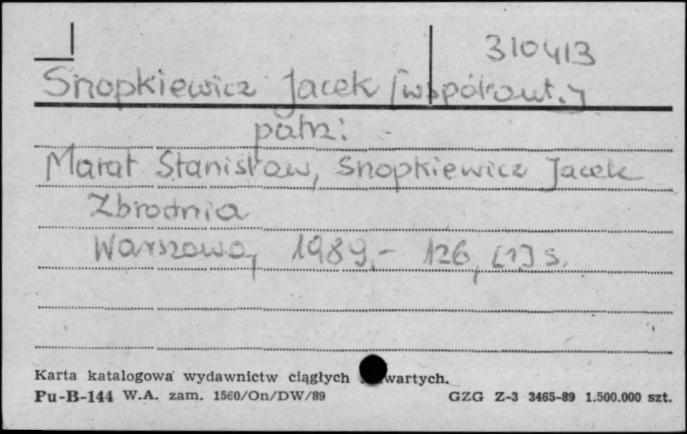 310413
Snopkiewicz Jacek [współaut.]
patrz:
Marat Stanisław, Snopkiewicz Jacek
Zbrodnia
Warszawa, 1989.- 126, [1] s.
Karta katalogowa wydawnictw ciągłych wartych.
Pu-B-144 W.A. zam. 1560/On/DW/89 GZG Z-3 3465-89 1.500.000 szt.